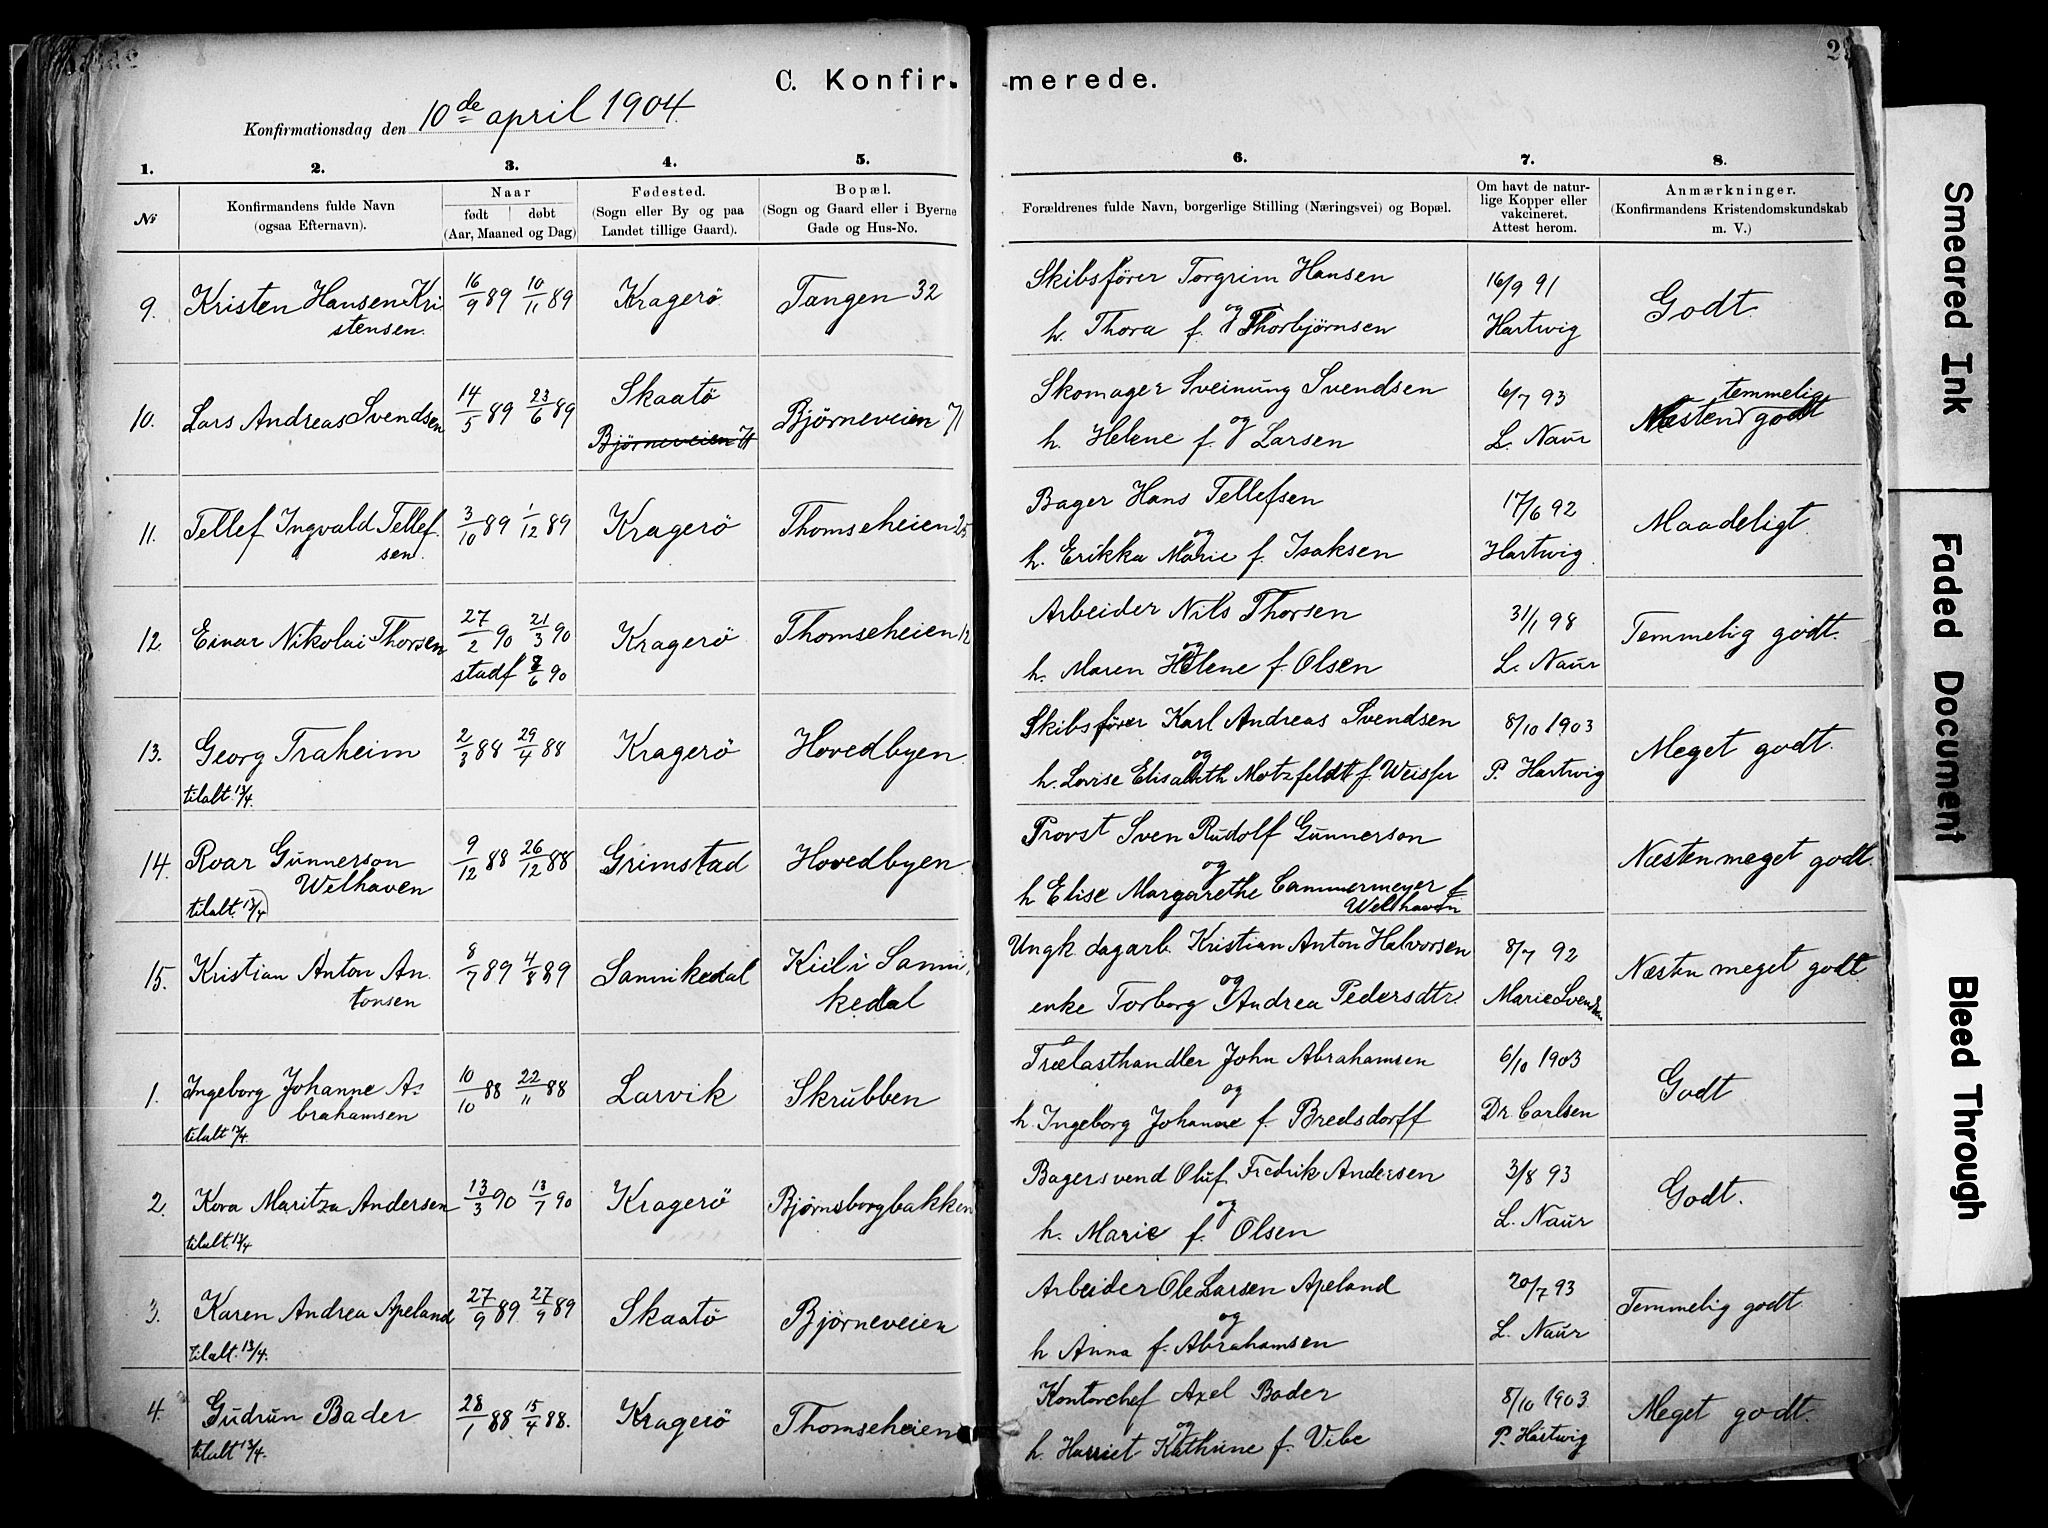 C. Konfirmerede.
Konfirmationsdag den 10de april 1904.
1. 2. 3. 4. 5. 6. 7. 8.
No
Konfirmandens fulde Navn (ogsaa Efternavn).
Naar født døbt (Aar, Maaned og Dag)
Fødested. (Sogn eller By og paa Landet tillige Gaard).
Bopæl. (Sogn og Gaard eller i Byerne Gade og Hus-No.
Forældrenes fulde Navn, borgerlige Stilling (Næringsvei) og Bopæl.
Om havt de naturlige Kopper eller vakcineret. Attest herom.
Anmærkninger. (Konfirmandens Kristendomskundskab m. V.)
9. Kristen Hansen Kri 16/9 89 10/11 89 Kragerö Tangen 32 Skibsförer Torgrim Hansen 16/9 91 Godt
stensen. og h. Thora f. Thorbjørnsen Hartwig
10. Lars Andreas Svendsen 14/5 89 23/6 89 Skaatö Bjørneveien 71 Skomager Sveinung Svendsen 6/7 93 temmelig
Bjørneveien 71 og h. Helene f. Larsen L. Naur Næsten godt
11. Tellef Ingvald Tellef 3/10 89 1/12 89 Kragerö Thomseheien 25 Bager Hans Tellefsen 17/6 92 Maadeligt
sen. og h. Erikka Marie f. Isaksen Hartwig
12. Einar Nikolai Thorsen 27/2 90 21/3 90 Kragerö Thomseheien 12 Arbeider Nils Thorsen 31/1 98 Temmelig godt.
stadf 8/6 90 og h. Maren Helene f. Olsen L. Naur
13. Georg Traheim 2/3 88 29/4 88 Kragerö Hovedbyen. Skibsfører Karl Andreas Svendsen 8/10 1903 Meget godt.
tilalt. 13/4. og h. Lovise Elisabeth Motzfeldt f. P. Hartwig
14. Roar Gunnerson 9/12 88 26/12 88 Grimstad Hovedbyen. Provst Sven Rudolf Gunnerson Næsten meget godt.
Welhaven og h Elise Margarethe Cammermeyer f
tilalt. 13/4 Welhaven
15. Kristian Anton An 8/7 89 4/8 89 Sannikedal Kiil i Sanni Ungk dagarb. Kristian Anton Halvorsen 8/7 92 Næsten meget godt
tonsen kedal og enke Torborg Andrea Pedersdtr. Marie Svendsen
1. Ingeborg Johanne A- 10/10 88 22/11 88 Larvik Skrubben Trælasthandler John Abrahamsen 6/10 1903 Godt
brahamsen og h. Ingeborg Johanne f. Bredsdorff Dr Carlsen
tilalt 13/4.
2. Kora Maritza Andersen 13/3 90 13/7 90 Kragerö Bjørnsborgbakken Bagersvend Oluf Fredrik Andersen 3/8 93 Godt.
tilalt. 13/4 og h. Marie f. Olsen L. Naur
3. Karen Andrea Apeland 27/9 89. 27/9 89 Skaatö Bjørneveien Arbeider Ole Larsen Apeland 20/7 93 Temmelig godt
tilalt. 13/4. og h Anna f. Abrahamsen L. Naur
4. Gudrun Bader 28/1 88. 15/4 88. Kragerö Thomseheien Kontorchef Axel Bader 8/10 1903 Meget godt.
tilalt 13/4. og h. Harriet Kathrine f. Vibe P. Hartwig
Smeared Ink
Faded Document
Bleed Through